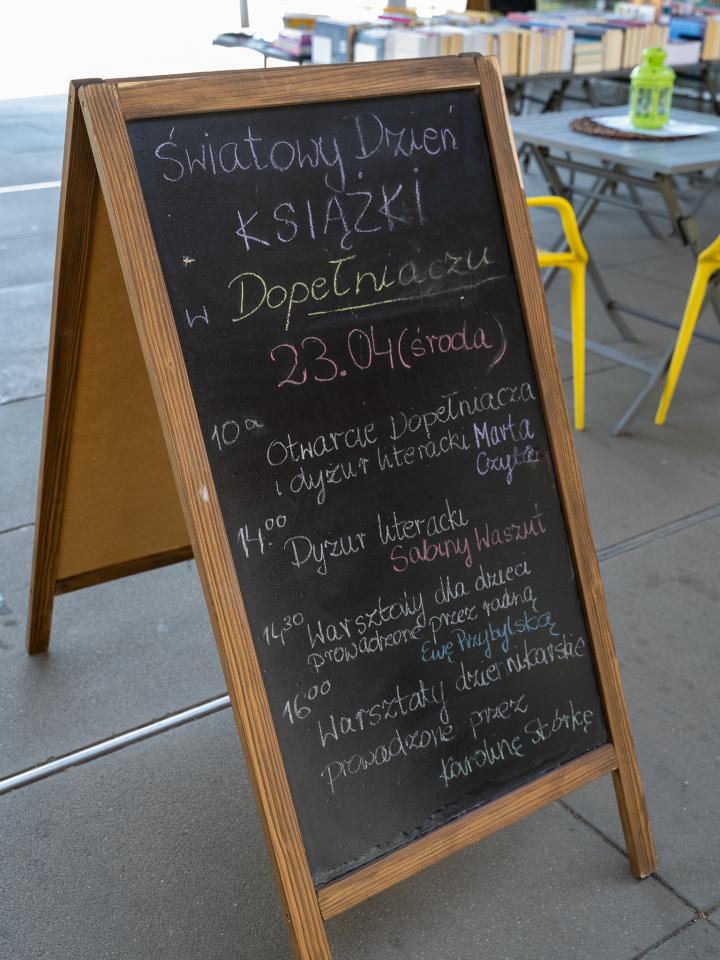 Światowy Dzień
KSIĄŻKI
w Dopełniaczu
23.04 (środa)
10⁰⁰ Otwarcie Dopełniacza
i dyżur literacki Marta
14.⁰⁰ Dyżur literacki
Sabiny Waszut
14,³⁰ Warsztaty dla dzieci
prowadzone przez radną
Ewę Przybylską
16⁰⁰ Warsztaty dziennikarskie
prowadzone przez
Karolinę